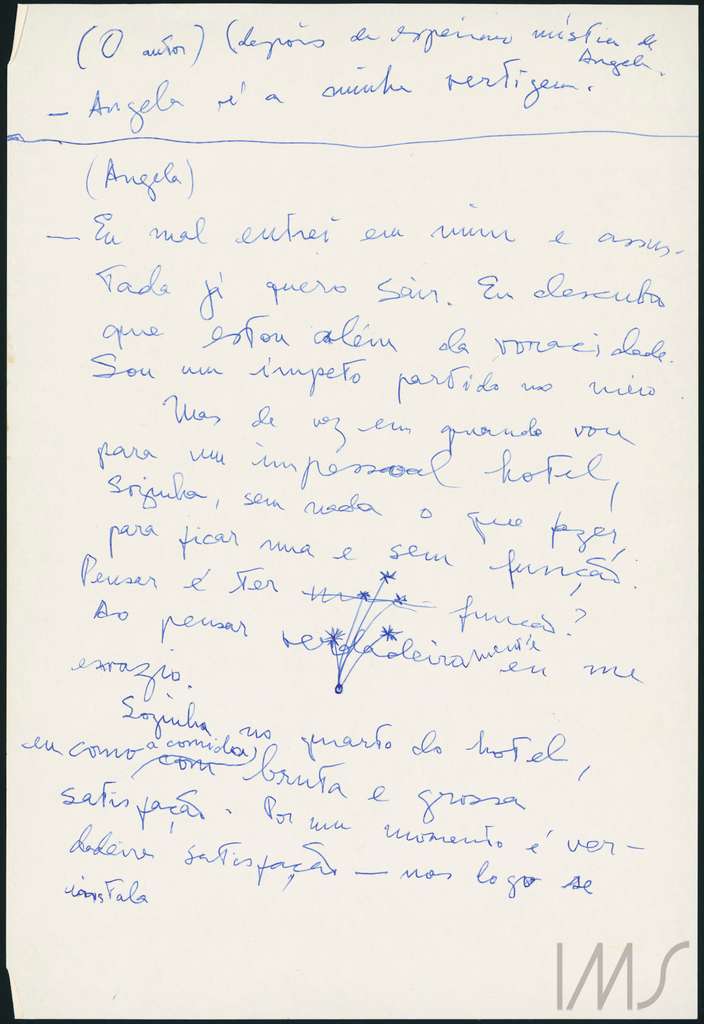 (O autor) (depois da experiencia mística de Angela.
— Angela é a minha vertigem.
(Angela)
— Eu mal entrei em mim e assus-
tada já quero sair. Eu descubro
que estou além da voracidade.
Sou um ímpeto partido no meio
Mas de vez em quando vou
para um impessoal hotel,
sozinha, sem nada o que fazer,
para ficar nua e sem função.
Pensar é ter função?
Ao pensar verdadeiramente eu me
esvazio.
Sozinha no quarto do hotel,
eu como a comida com bruta e grossa
satisfação. Por um momento é ver-
dadeira satisfação — mas logo se
instala
IMS